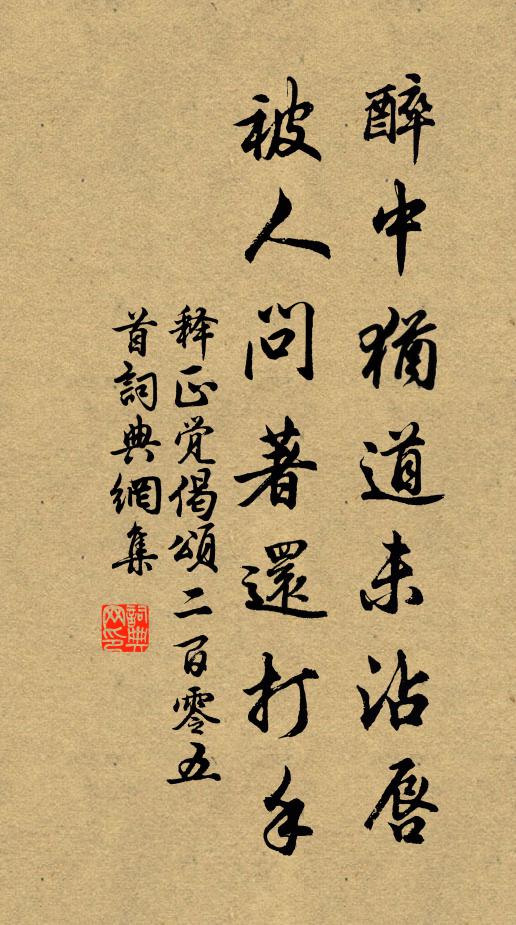 醉中猶道未沾唇
被人問著還打手
释正覚偈頌二百零五
首詞典網集
詞典网印